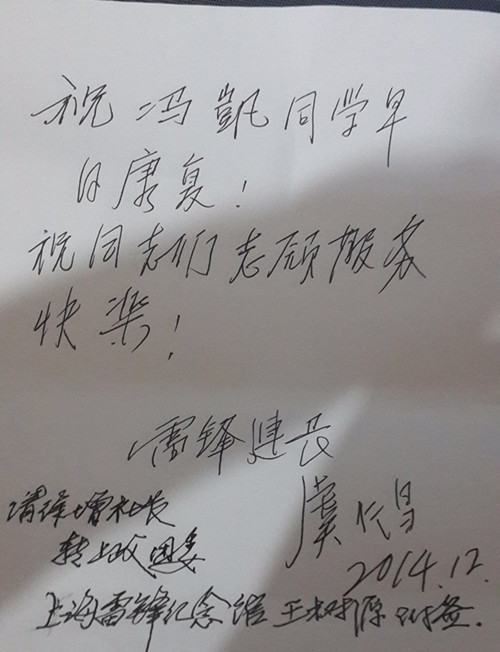 祝冯凱同学早
日康复！
祝同志们志愿服务
快樂！
雷锋連长
虞仁昌
2014.12.
请徐增社长
转上政团委
上海雷锋纪念馆 王树源 附签.